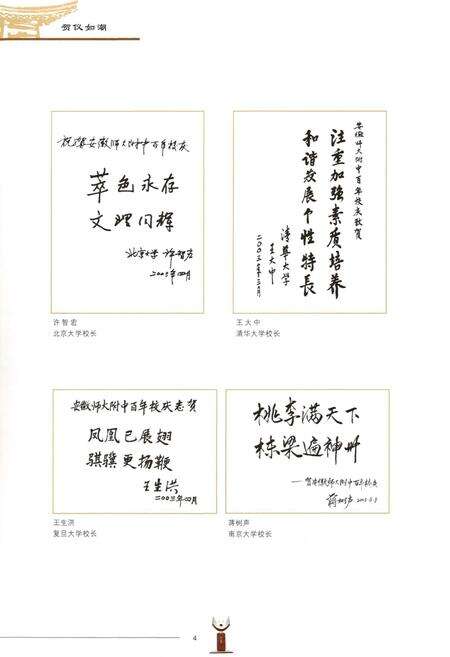 贺仪如潮
祝贺安徽师大附中百年校庆
萃色永存
文理同辉
北京大学 许智宏
安徽师大附中百年校庆致贺
注重加强素质培养
和谐发展个性特长
清华大学
王大中
二〇〇三年三月
许智宏
北京大学校长
王大中
清华大学校长
安徽师大附中百年校庆志贺
凤凰已展翅
骐骥更扬鞭
王生洪
二〇〇三年四月
桃李满天下
栋梁遍神州
——贺安徽师大附中百年校庆
蒋树声
王生洪
复旦大学校长
蒋树声
南京大学校长
4